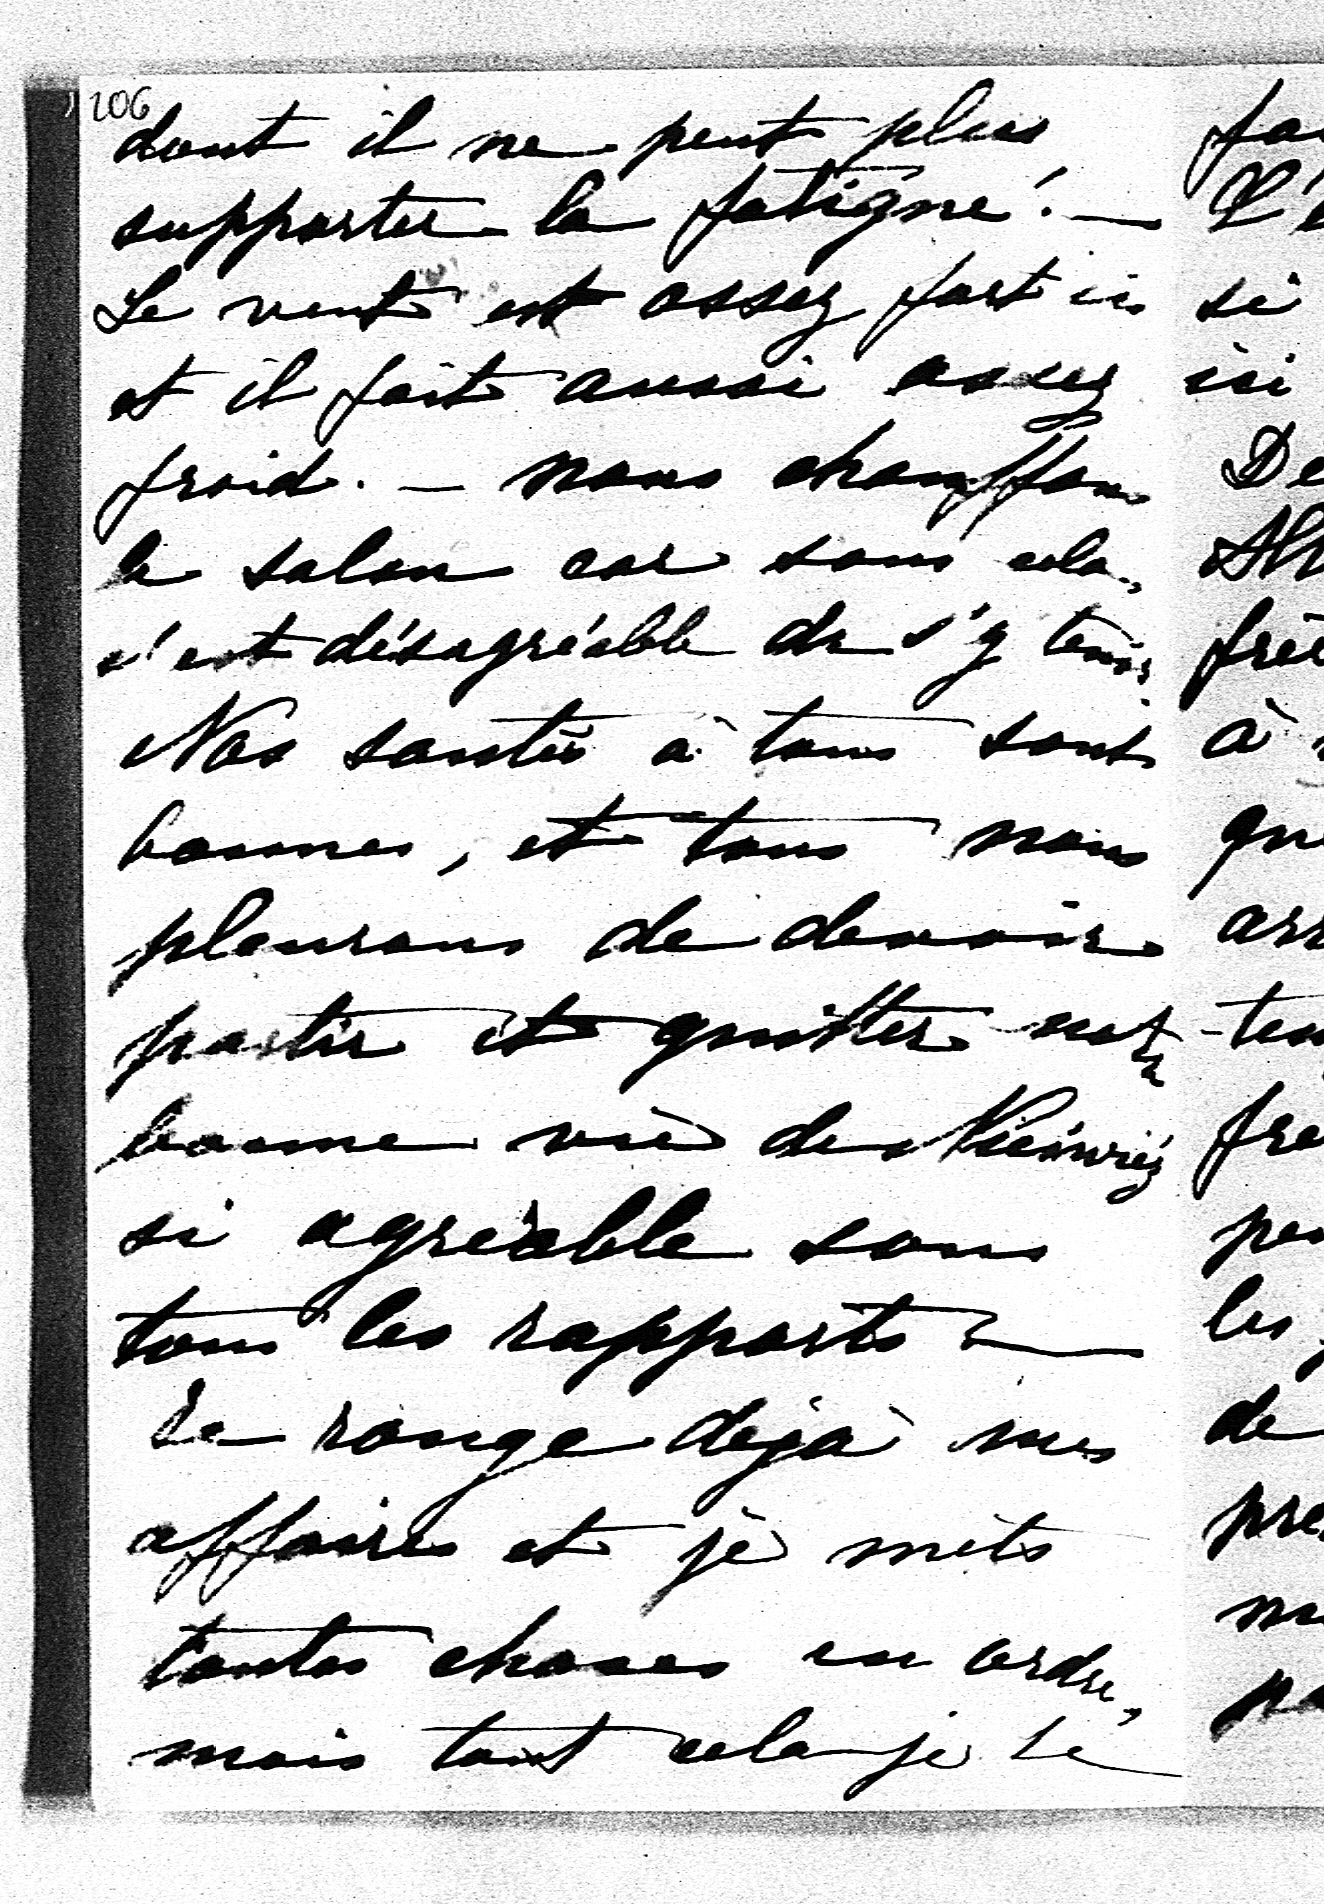 206
dont il ne peut plus
supporter la fatigue! —
Le vent est assez fort ici
et il fait aussi assez
froid. — nous chauffons
le salon car sans cela,
c'est désagréable de s'y tenir.
Nos santés à tous sont
bonnes, et tous nous
pleurons de devoir
partir et quitter notre
bonne vie de
si agréable sous
tous les rapports —
Je range déjà mes
affaires et je mets
toutes choses en ordre,
mais tout cela je le